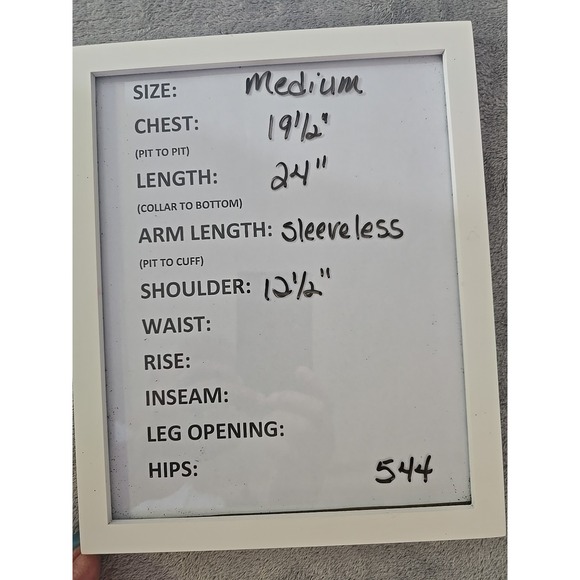 SIZE: Medium
CHEST: 19 1/2"
(PIT TO PIT)
LENGTH: 24"
(COLLAR TO BOTTOM)
ARM LENGTH: Sleeveless
(PIT TO CUFF)
SHOULDER: 12 1/2"
WAIST:
RISE:
INSEAM:
LEG OPENING:
HIPS: 544